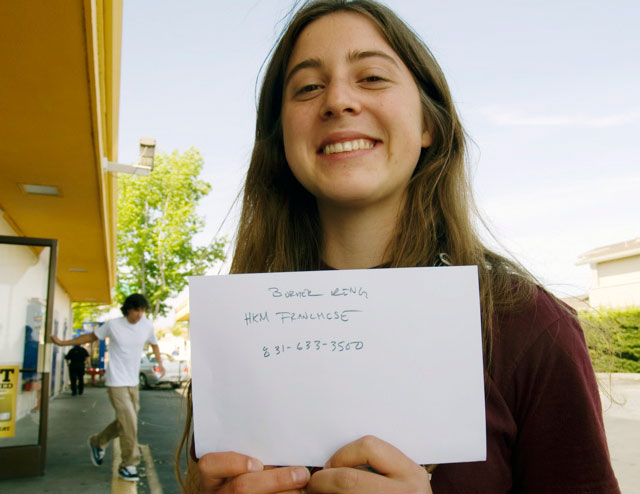 BURGER KING
HKM FRANCHISE
831-633-3500
T